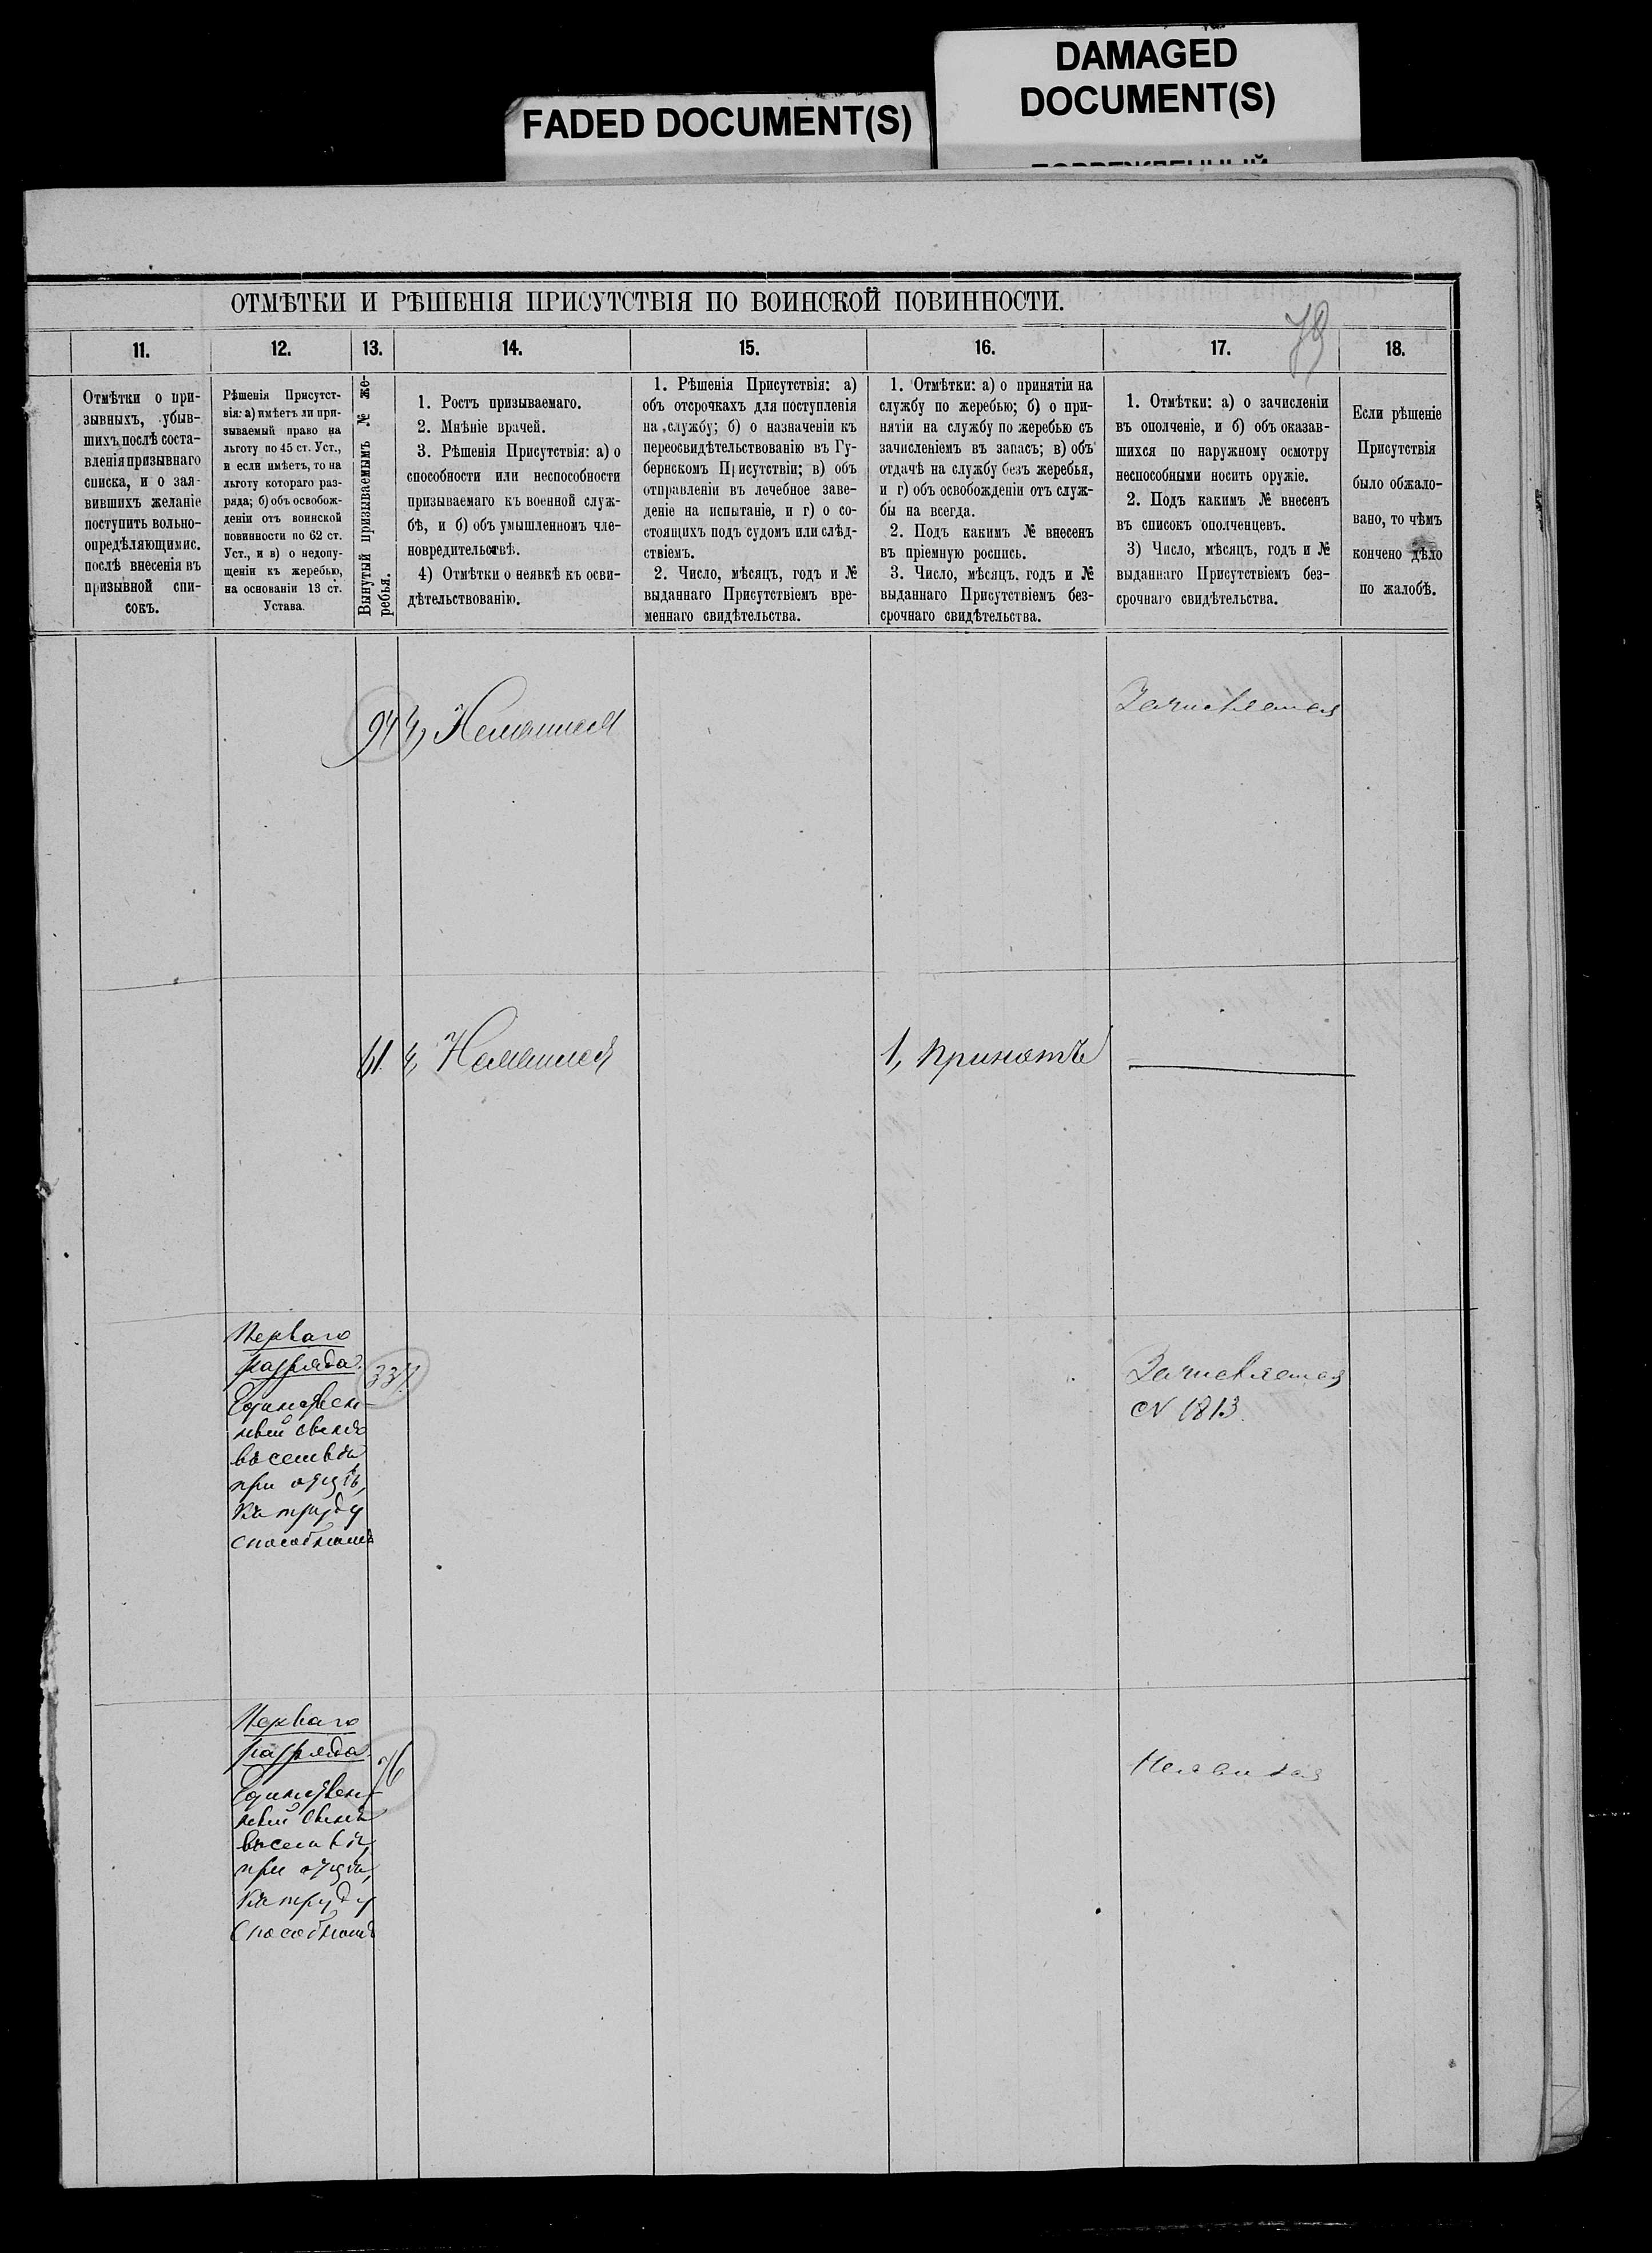 DAMAGED
DOCUMENT(S)
FADED DOCUMENT(S)
ОТМѢТКИ И РѢШЕНІЯ ПРИСУТСТВІЯ ПО ВОИНСКОЙ ПОВИННОСТИ.
11.
Отмѣтки о при-
зывныхъ, убыв-
шихъ послѣ соста-
вленія призывнаго
списка, и о зая-
вившихъ желаніе
поступить вольно-
опредѣляющимис.
послѣ внесенія въ
призывной спи-
сокъ.
12.
Рѣшенія Присутст-
вія: а) имѣетъ ли при-
зываемый право на
льготу по 45 ст. Уст.,
и если имѣетъ, то на
льготу котораго раз-
ряда; б) объ освобож-
деніи отъ воинской
повинности по 62 ст.
Уст., и в) о недопу-
щеніи къ жеребью,
на основаніи 13 ст.
Устава.
13.
Вынутый призываемымъ № же-
ребья.
14.
1. Ростъ призываемаго.
2. Мнѣніе врачей.
3. Рѣшенія Присутствія: а) о
способности или неспособности
призываемаго къ военной служ-
бѣ, и б) объ умышленномъ чле-
новредительствѣ.
4) Отмѣтки о неявкѣ къ осви-
дѣтельствованію.
15.
1. Рѣшенія Присутствія: а)
объ отсрочкахъ для поступленія
на службу; б) о назначеніи къ
переосвидѣтельствованію въ Гу-
бернскомъ Присутствіи; в) объ
отправленіи въ лечебное заве-
деніе на испытаніе, и г) о со-
стоящихъ подъ судомъ или слѣд-
ствіемъ.
2. Число, мѣсяцъ, годъ и №
выданнаго Присутствіемъ вре-
меннаго свидѣтельства.
16.
1. Отмѣтки: а) о принятіи на
службу по жеребью; б) о при-
нятіи на службу по жеребью съ
зачисленіемъ въ запасъ; в) объ
отдачѣ на службу безъ жеребья,
и г) объ освобожденіи отъ служ-
бы на всегда.
2. Подъ какимъ № внесенъ
въ пріемную роспись.
3. Число, мѣсяцъ, годъ и №
выданнаго Присутствіемъ без-
срочнаго свидѣтельства.
17.
1. Отмѣтки: а) о зачисленіи
въ ополченіе, и б) объ оказав-
шихся по наружному осмотру
неспособными носить оружіе.
2. Подъ какимъ № внесенъ
въ списокъ ополченцевъ.
3) Число, мѣсяцъ, годъ и №
выданнаго Присутствіемъ без-
срочнаго свидѣтельства.
18.
Если рѣшеніе
Присутствія
было обжало-
вано, то чѣмъ
кончено дѣло
по жалобѣ.
Зачисляется
61. 4,
1, Принятъ
Перваго
разряда.
Единствен-
ный сынъ
въ семьѣ
при отцѣ,
къ труду
способномъ
337
Зачисляется
№ 1813.
Перваго
разряда.
Единствен-
ный сынъ
въ семьѣ
при отцѣ,
къ труду
способномъ
76